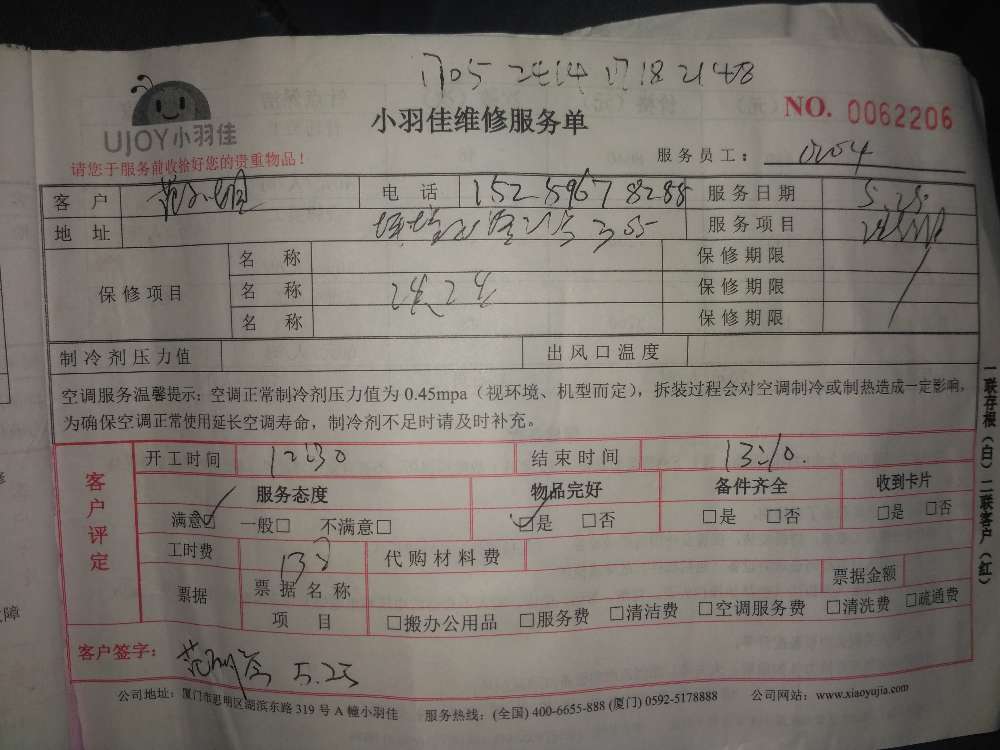 1705 2414 1718 2148
UJOY小羽佳
小羽佳维修服务单
NO. 0062206
请您于服务前收拾好您的贵重物品！
服务员工：
客户 电话 服务日期 5.25.
地址 服务项目
保修项目 名称 保修期限
名称 保修期限
名称 保修期限
制冷剂压力值 出风口温度
空调服务温馨提示：空调正常制冷剂压力值为 0.45mpa（视环境、机型而定），拆装过程会对空调制冷或制热造成一定影响，
为确保空调正常使用延长空调寿命，制冷剂不足时请及时补充。
客户评定
开工时间 12:30 结束时间 13:10.
服务态度 物品完好 备件齐全 收到卡片
满意☑ 一般□ 不满意□ ☑是 □否 □是 □否 □是 □否
工时费 代购材料费
票据 票据名称 票据金额
项目 □搬办公用品 □服务费 □清洁费 □空调服务费 □清洗费 □疏通费
客户签字： 5.25
公司地址：厦门市思明区湖滨东路 319 号 A 幢小羽佳 服务热线：(全国) 400-6655-888 (厦门) 0592-5178888 公司网站：www.xiaoyujia.com
一联存根（白）二联客户（红）